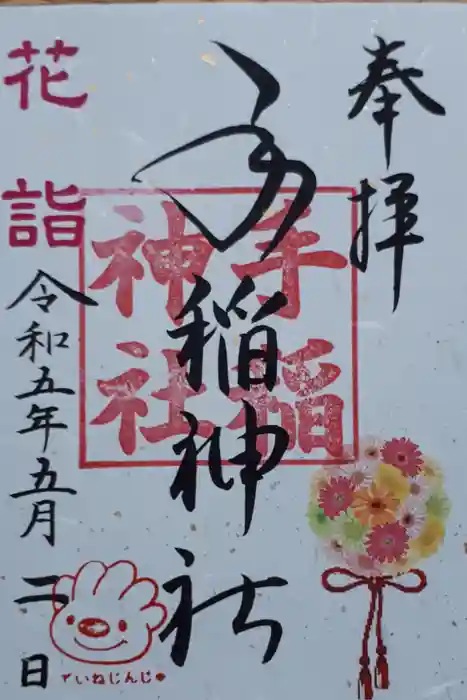 奉拝
手稲神社
手稲神社
花詣
令和五年五月二日
ていねじんじゃ